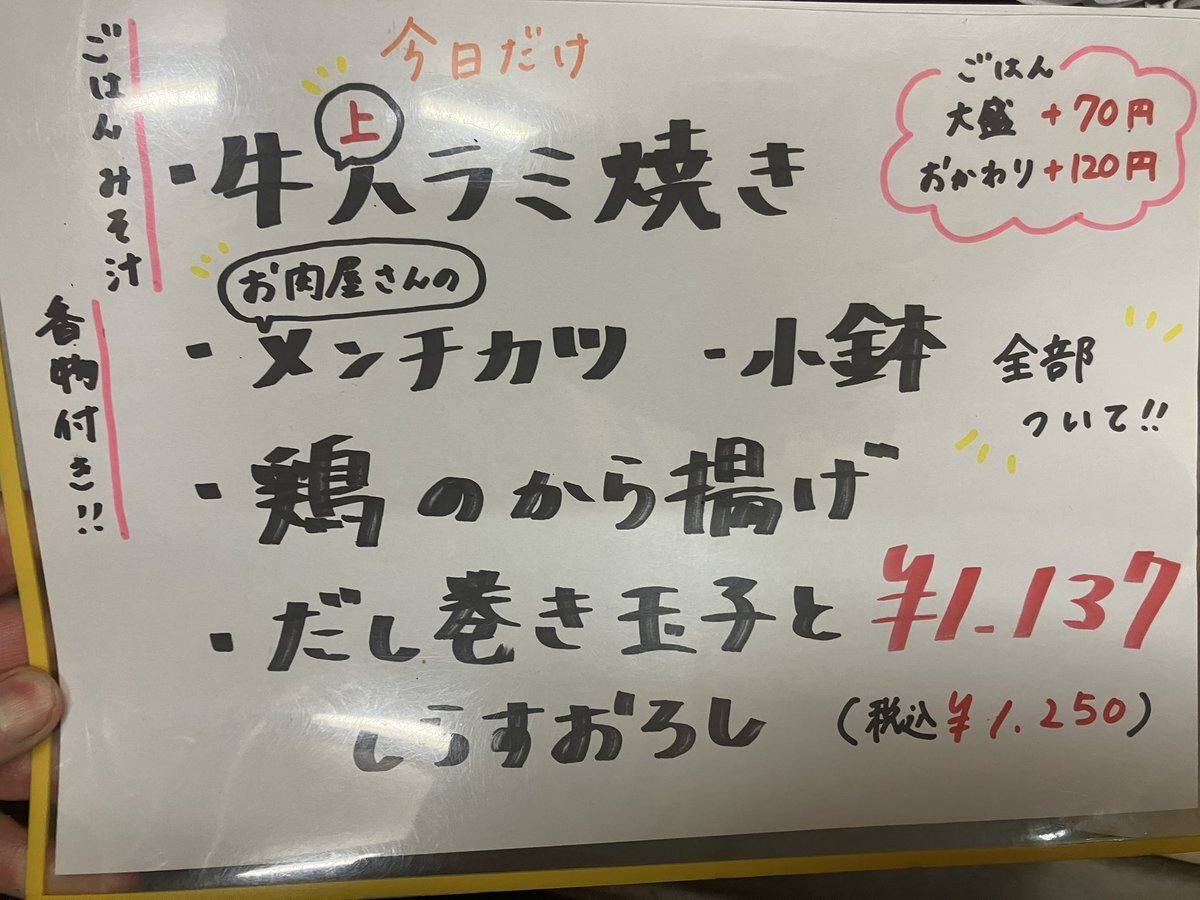 今日だけ
ごはん みそ汁
香物付き!!
ごはん
大盛 +70円
おかわり +120円
上
・牛ハラミ焼き
お肉屋さんの
・メンチカツ ・小鉢
・鶏のから揚げ
・だし巻き玉子と
しらすおろし
全部
ついて!!
¥1.137
(税込¥1.250)